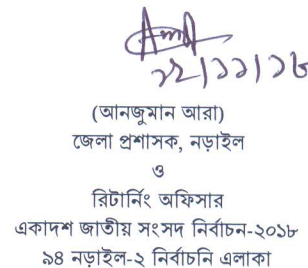 ১২/১১/১৮
(আনজুমান আরা)
জেলা প্রশাসক, নড়াইল
ও
রিটার্নিং অফিসার
একাদশ জাতীয় সংসদ নির্বাচন-২০১৮
৯৪ নড়াইল-২ নির্বাচনি এলাকা